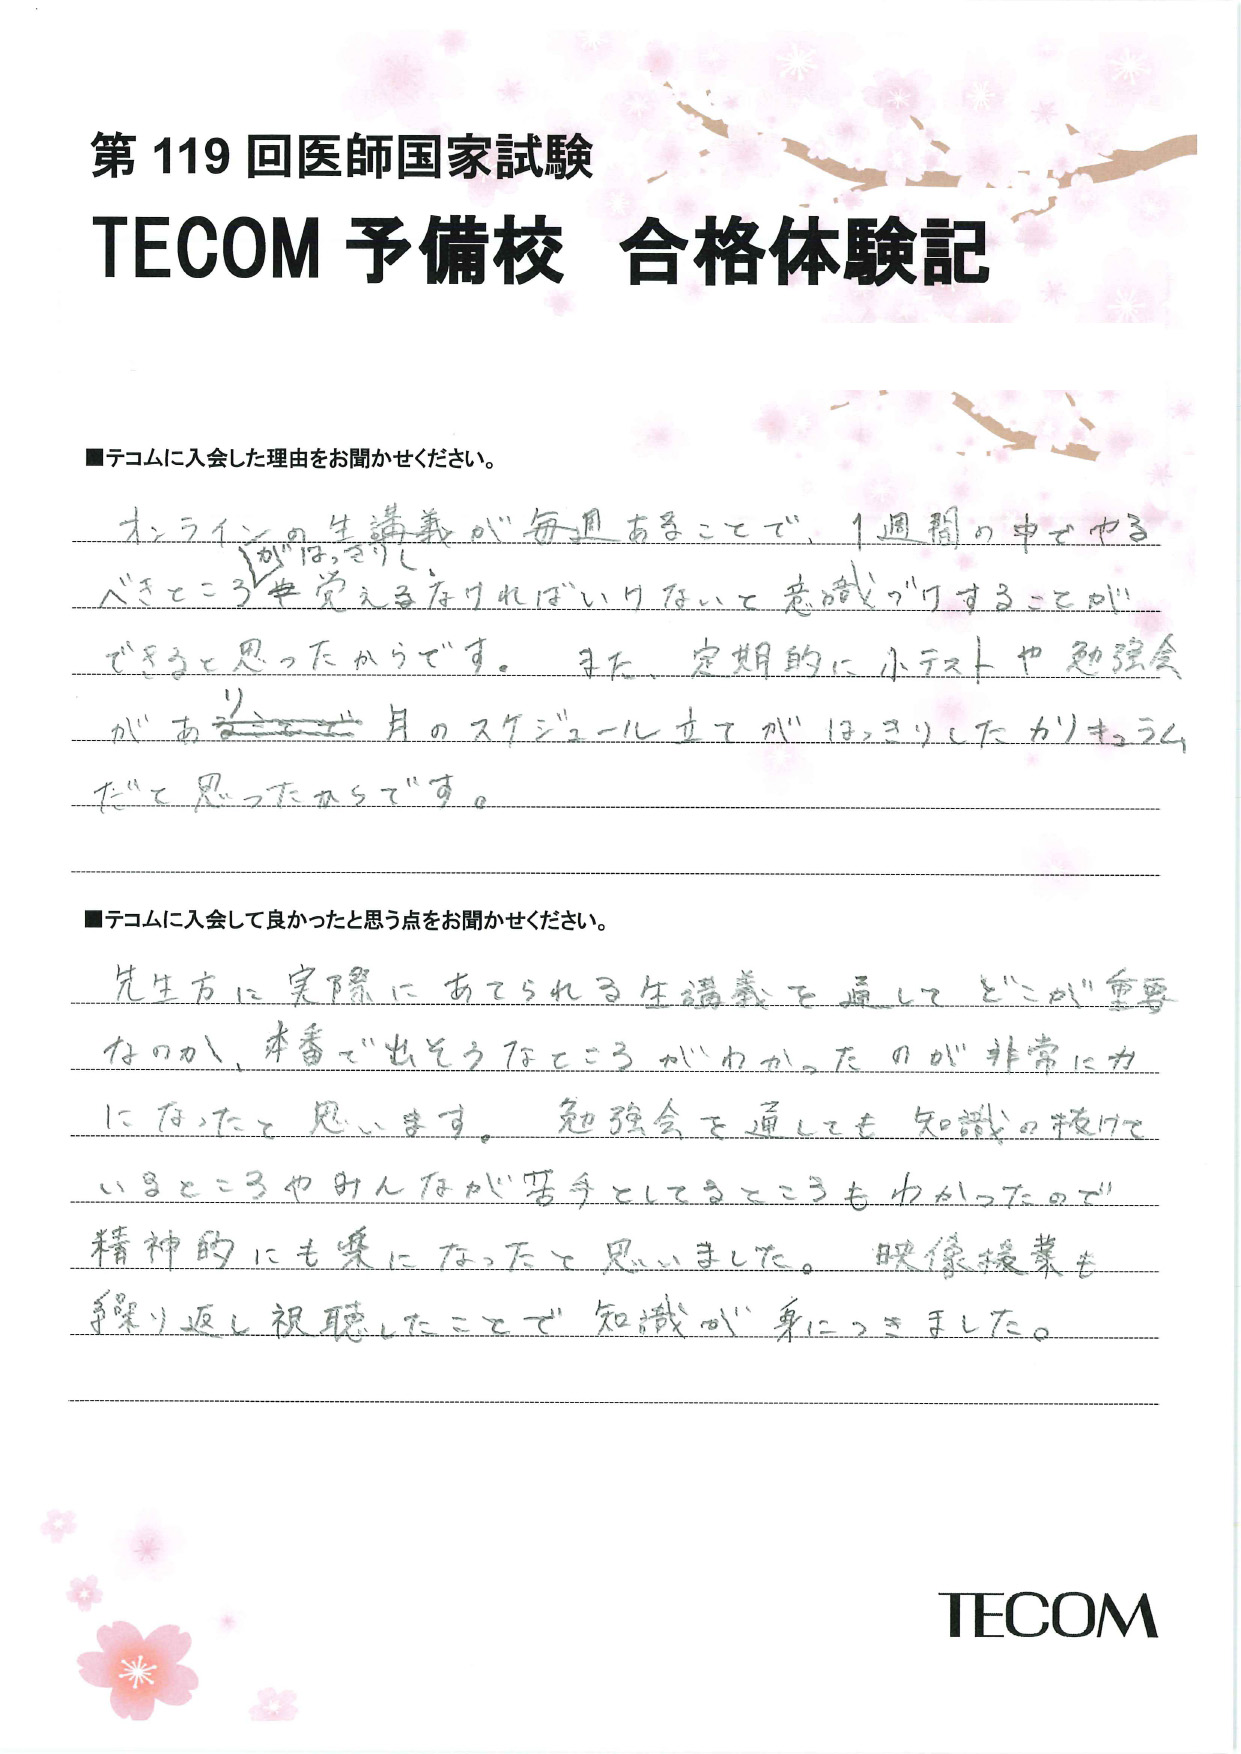 第 119 回医師国家試験
TECOM 予備校 合格体験記
■テコムに入会した理由をお聞かせください。
オンラインの生講義が毎週あることで、1週間の中でやる
がはっきりし、
べきところ覚えるなければいけないと意識づけすることが
できると思ったからです。 また、定期的に小テストや勉強会
があり月のスケジュール立てがはっきりしたカリキュラム
だと思ったからです。
■テコムに入会して良かったと思う点をお聞かせください。
先生方に実際にあてられる生講義を通してどこが重要
なのか、本番で出そうなところがわかったのが非常に力
になったと思います。 勉強会を通しても知識の抜けて
いるところやみんなが苦手としてるところもわかったので
精神的にも楽になったと思いました。 映像授業も
繰り返し視聴したことで知識が身につきました。
TECOM